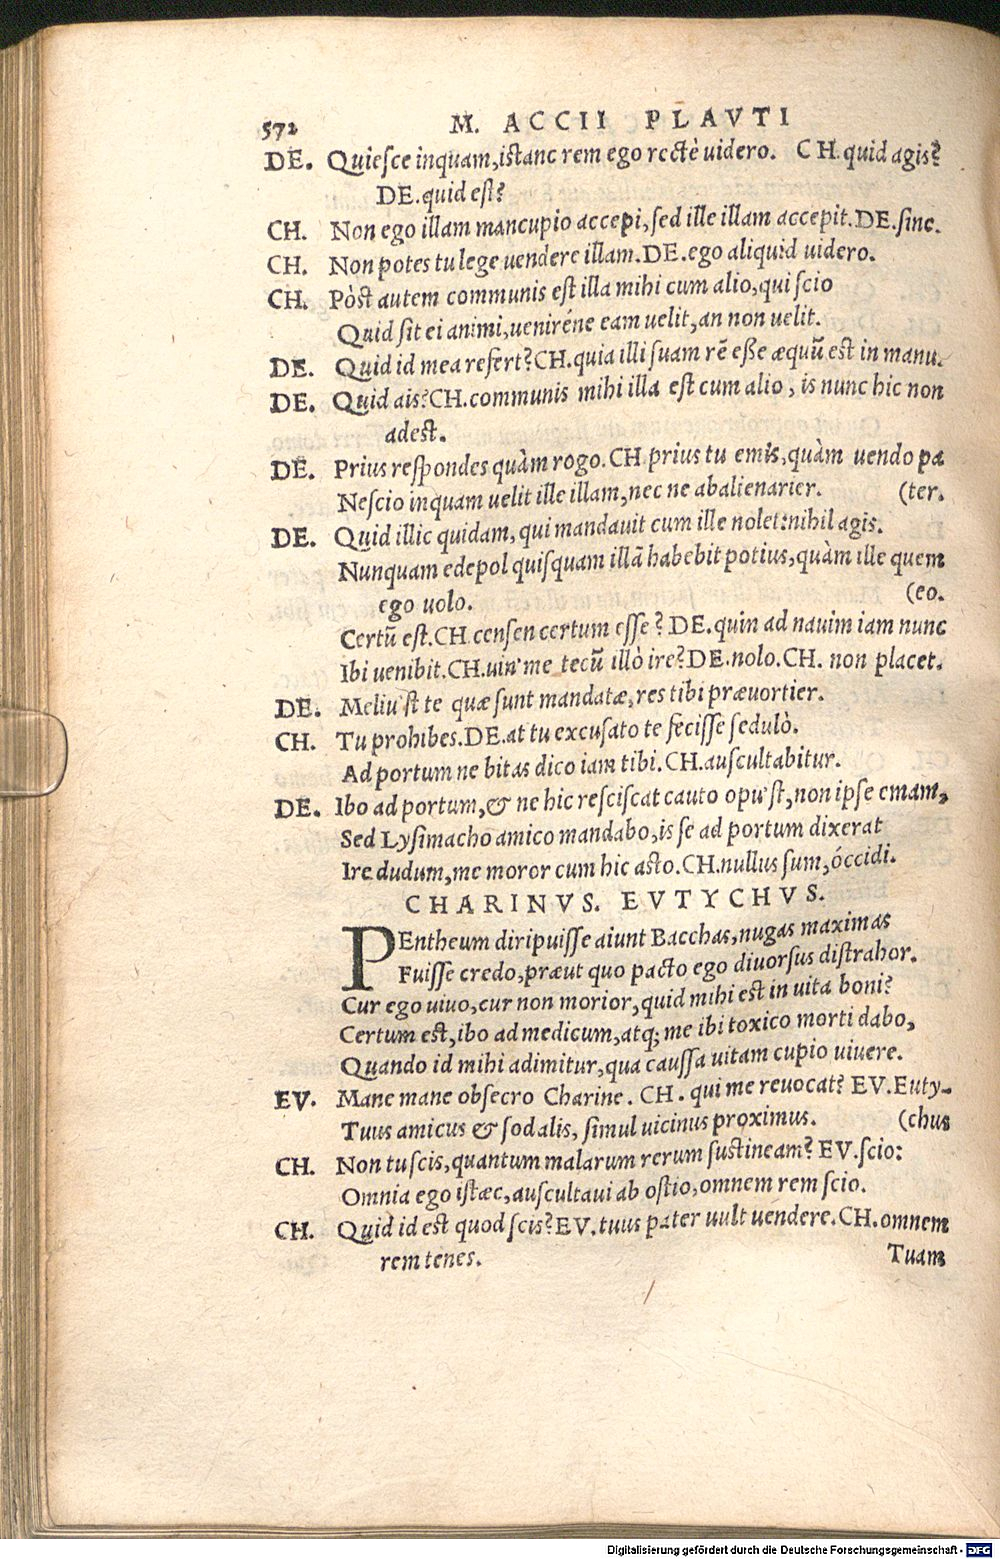 572 M. ACCII PLAVTI
DE. Quiesce inquam, istanc rem ego rectè uidero. CH. quid agis?
DE. quid est?
CH. Non ego illam mancupio accepi, sed ille illam accepit. DE. sine.
CH. Non potes tu lege uendere illam. DE. ego aliquid uidero.
CH. Pòst autem communis est illa mihi cum alio, qui scio
Quid sit ei animi, uenirène eam uelit, an non uelit.
DE. Quid id mea refert? CH. quia illi suam rē esse æquū est in manu.
DE. Quid ais? CH. communis mihi illa est cum alio, is nunc hic non
adest.
DE. Prius respondes quàm rogo. CH. prius tu emis, quàm uendo pa
Nescio inquam uelit ille illam, nec ne abalienarier. (ter.
DE. Quid illic quidam, qui mandauit cum ille nolet: nihil agis.
Nunquam edepol quisquam illā habebit potius, quàm ille quem
ego uolo. (eo.
Certū est. CH. censen certum esse? DE. quin ad nauim iam nunc
Ibi uenibit. CH. uin' me tecū illò ire? DE. nolo. CH. non placet.
DE. Meliu'st te quæ sunt mandatæ, res tibi præuortier.
CH. Tu prohibes. DE. at tu excusato te fecisse sedulò.
Ad portum ne bitas dico iam tibi. CH. auscultabitur.
DE. Ibo ad portum, & ne hic resciscat cauto opu'st, non ipse emam,
Sed Lysimacho amico mandabo, is se ad portum dixerat
Ire dudum, me moror cum hic asto. CH. nullus sum, óccidi.
CHARINVS. EVTYCHVS.
PEntheum diripuisse aiunt Bacchas, nugas maximas
Fuisse credo, præut quo pacto ego diuorsus distrahor.
Cur ego uiuo, cur non morior, quid mihi est in uita boni?
Certum est, ibo ad medicum, atq; me ibi toxico morti dabo,
Quando id mihi adimitur, qua caussa uitam cupio uiuere.
EV. Mane mane obsecro Charine. CH. qui me reuocat? EV. Euty-
Tuus amicus & sodalis, simul uicinus proximus. (chus
CH. Non tu scis, quantum malarum rerum sustineam? EV. scio:
Omnia ego istæc, auscultaui ab ostio, omnem rem scio.
CH. Quid id est quod scis? EV. tuus pater uult uendere. CH. omnem
rem tenes. Tuam
Digitalisierung gefördert durch die Deutsche Forschungsgemeinschaft - DFG